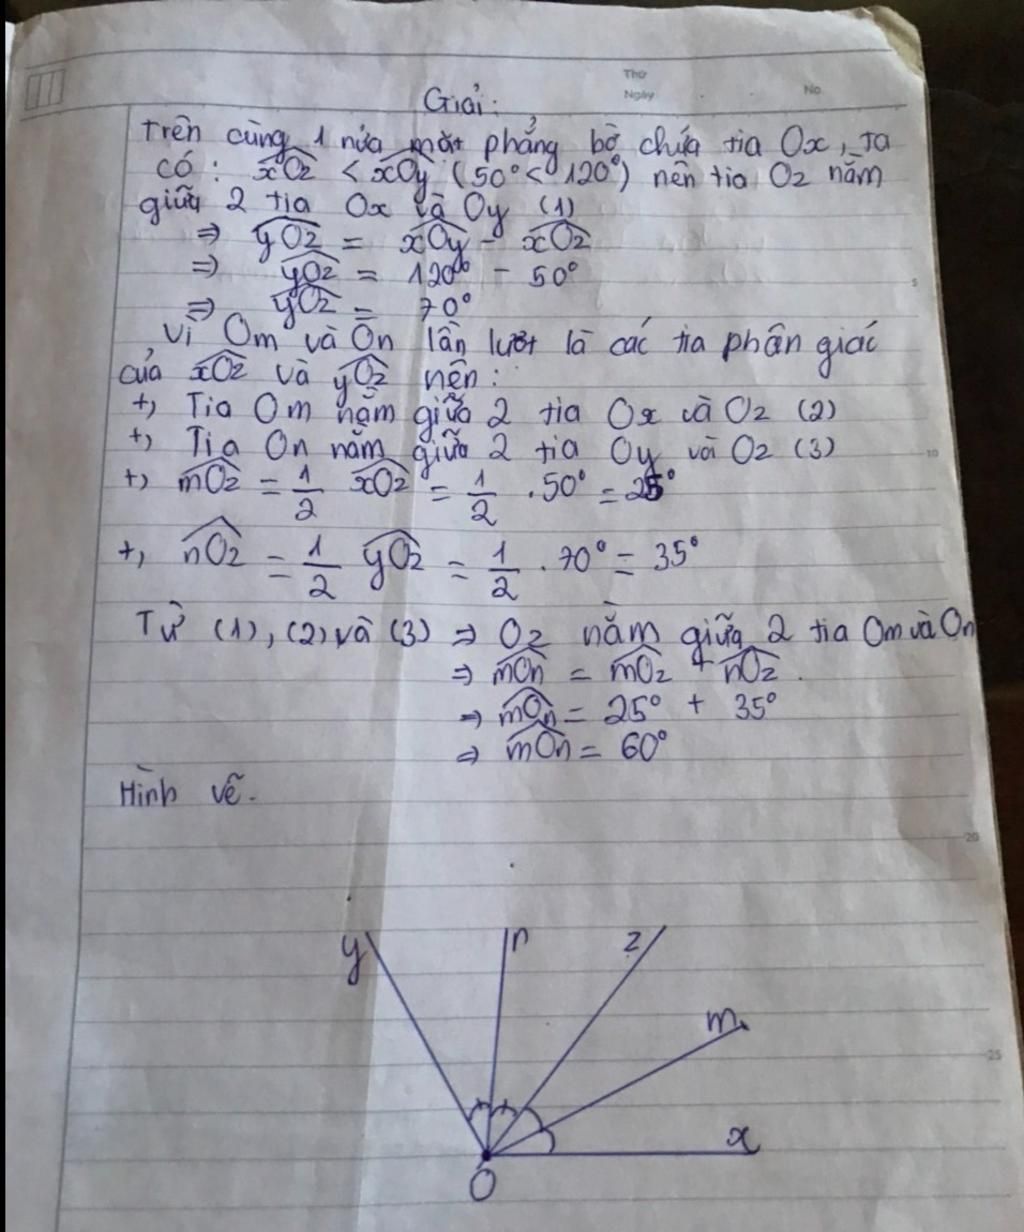 Thứ
Ngày No.
Giải:
Trên cùng 1 nửa mặt phẳng bờ chứa tia Ox, Ta
có: xOz < xOy (50° < 120°) nên tia Oz nằm
giữa 2 tia Ox và Oy (1)
⇒ yOz = xOy - xOz
⇒ yOz = 120° - 50°
⇒ yOz = 70°
Vì Om và On lần lượt là các tia phân giác
của xOz và yOz nên:
+, Tia Om nằm giữa 2 tia Ox và Oz (2)
+, Tia On nằm giữa 2 tia Oy và Oz (3)
+, mOz = 1/2 xOz = 1/2 . 50° = 25°
+, nOz = 1/2 yOz = 1/2 . 70° = 35°
Từ (1), (2) và (3) ⇒ Oz nằm giữa 2 tia Om và On
⇒ mOn = mOz + nOz.
⇒ mOn = 25° + 35°
⇒ mOn = 60°
Hình vẽ.
y n z
m
x
O
5
10
20
25